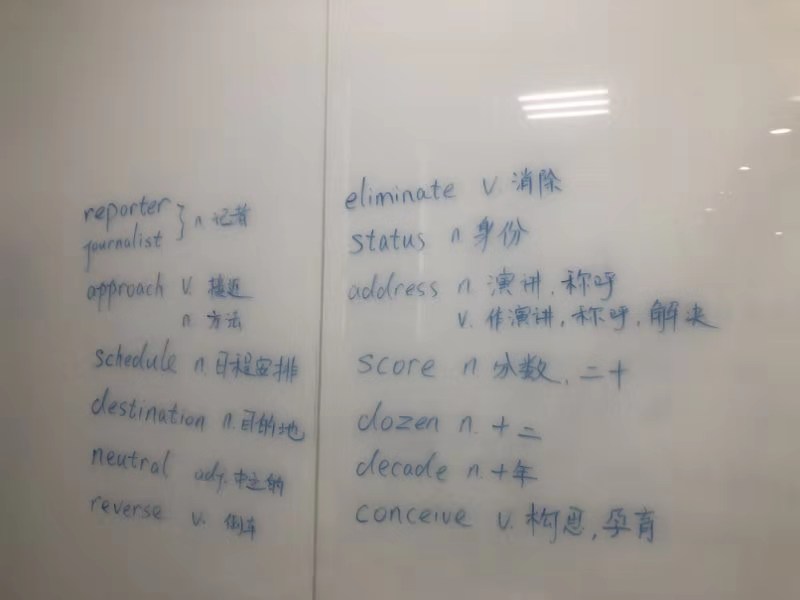 reporter } n. 记者
journalist
approach v. 接近
n. 方法
schedule n. 日程安排
destination n. 目的地
neutral adj. 中立的
reverse v. 倒车
eliminate v. 消除
status n 身份
address n. 演讲, 称呼
v. 作演讲, 称呼, 解决
score n 分数, 二十
dozen n. 十二
decade n. 十年
conceive v. 构思, 孕育